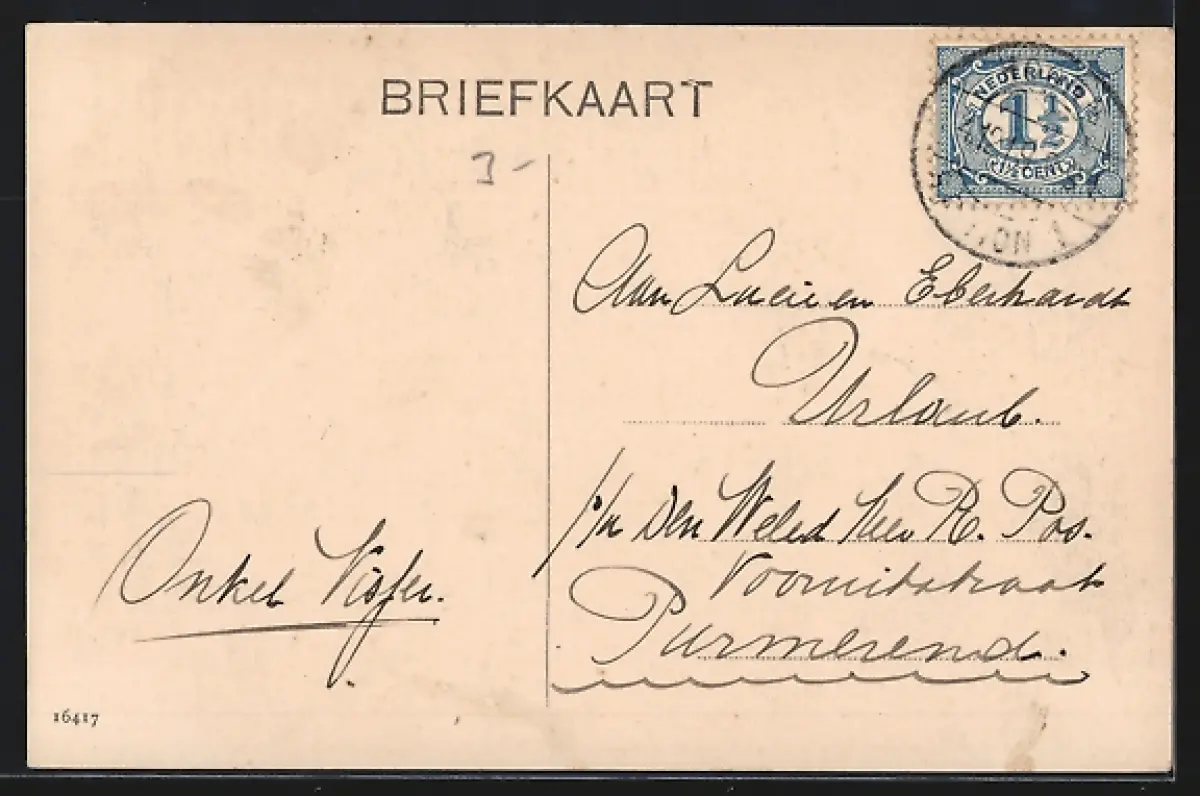 BRIEFKAART
3-
NEDERLAND
1½
1½ CENT
Aan Lucie en Eberhardt
Urlaub.
p/a Den Weled Heer R. Pos.
Vooruitstraat
Purmerend.
Onkel Visser.
16417